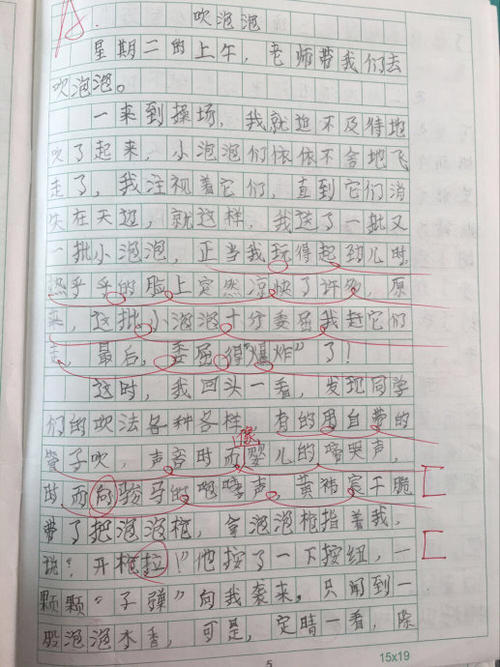 A
吹泡泡
星期二的上午，老师带我们去
吹泡泡。
一来到操场，我就迫不及待地
吹了起来，小泡泡们依依不舍地飞
走了，我注视着它们，直到它们消
失在天边，就这样，我送了一批又
一批小泡泡，正当我玩得起劲儿时，
热乎乎的脸上突然凉快了许多，原
来，这批小泡泡十分委屈我赶它们
走，最后，委屈得“爆炸”了！
这时，我回头一看，发现同学
们的吹法各种各样，有的用自带的
管子吹，声音时而像婴儿的啼哭声，
时而向骏马的咆哮声，黄祎宸干脆
带了把泡泡枪，拿泡泡枪指着我，
说：开枪拉！”他按了一下按纽，一
颗颗“子弹”向我袭来，只闻到一
股泡泡水香，可是，定睛一看，除
5
15x19